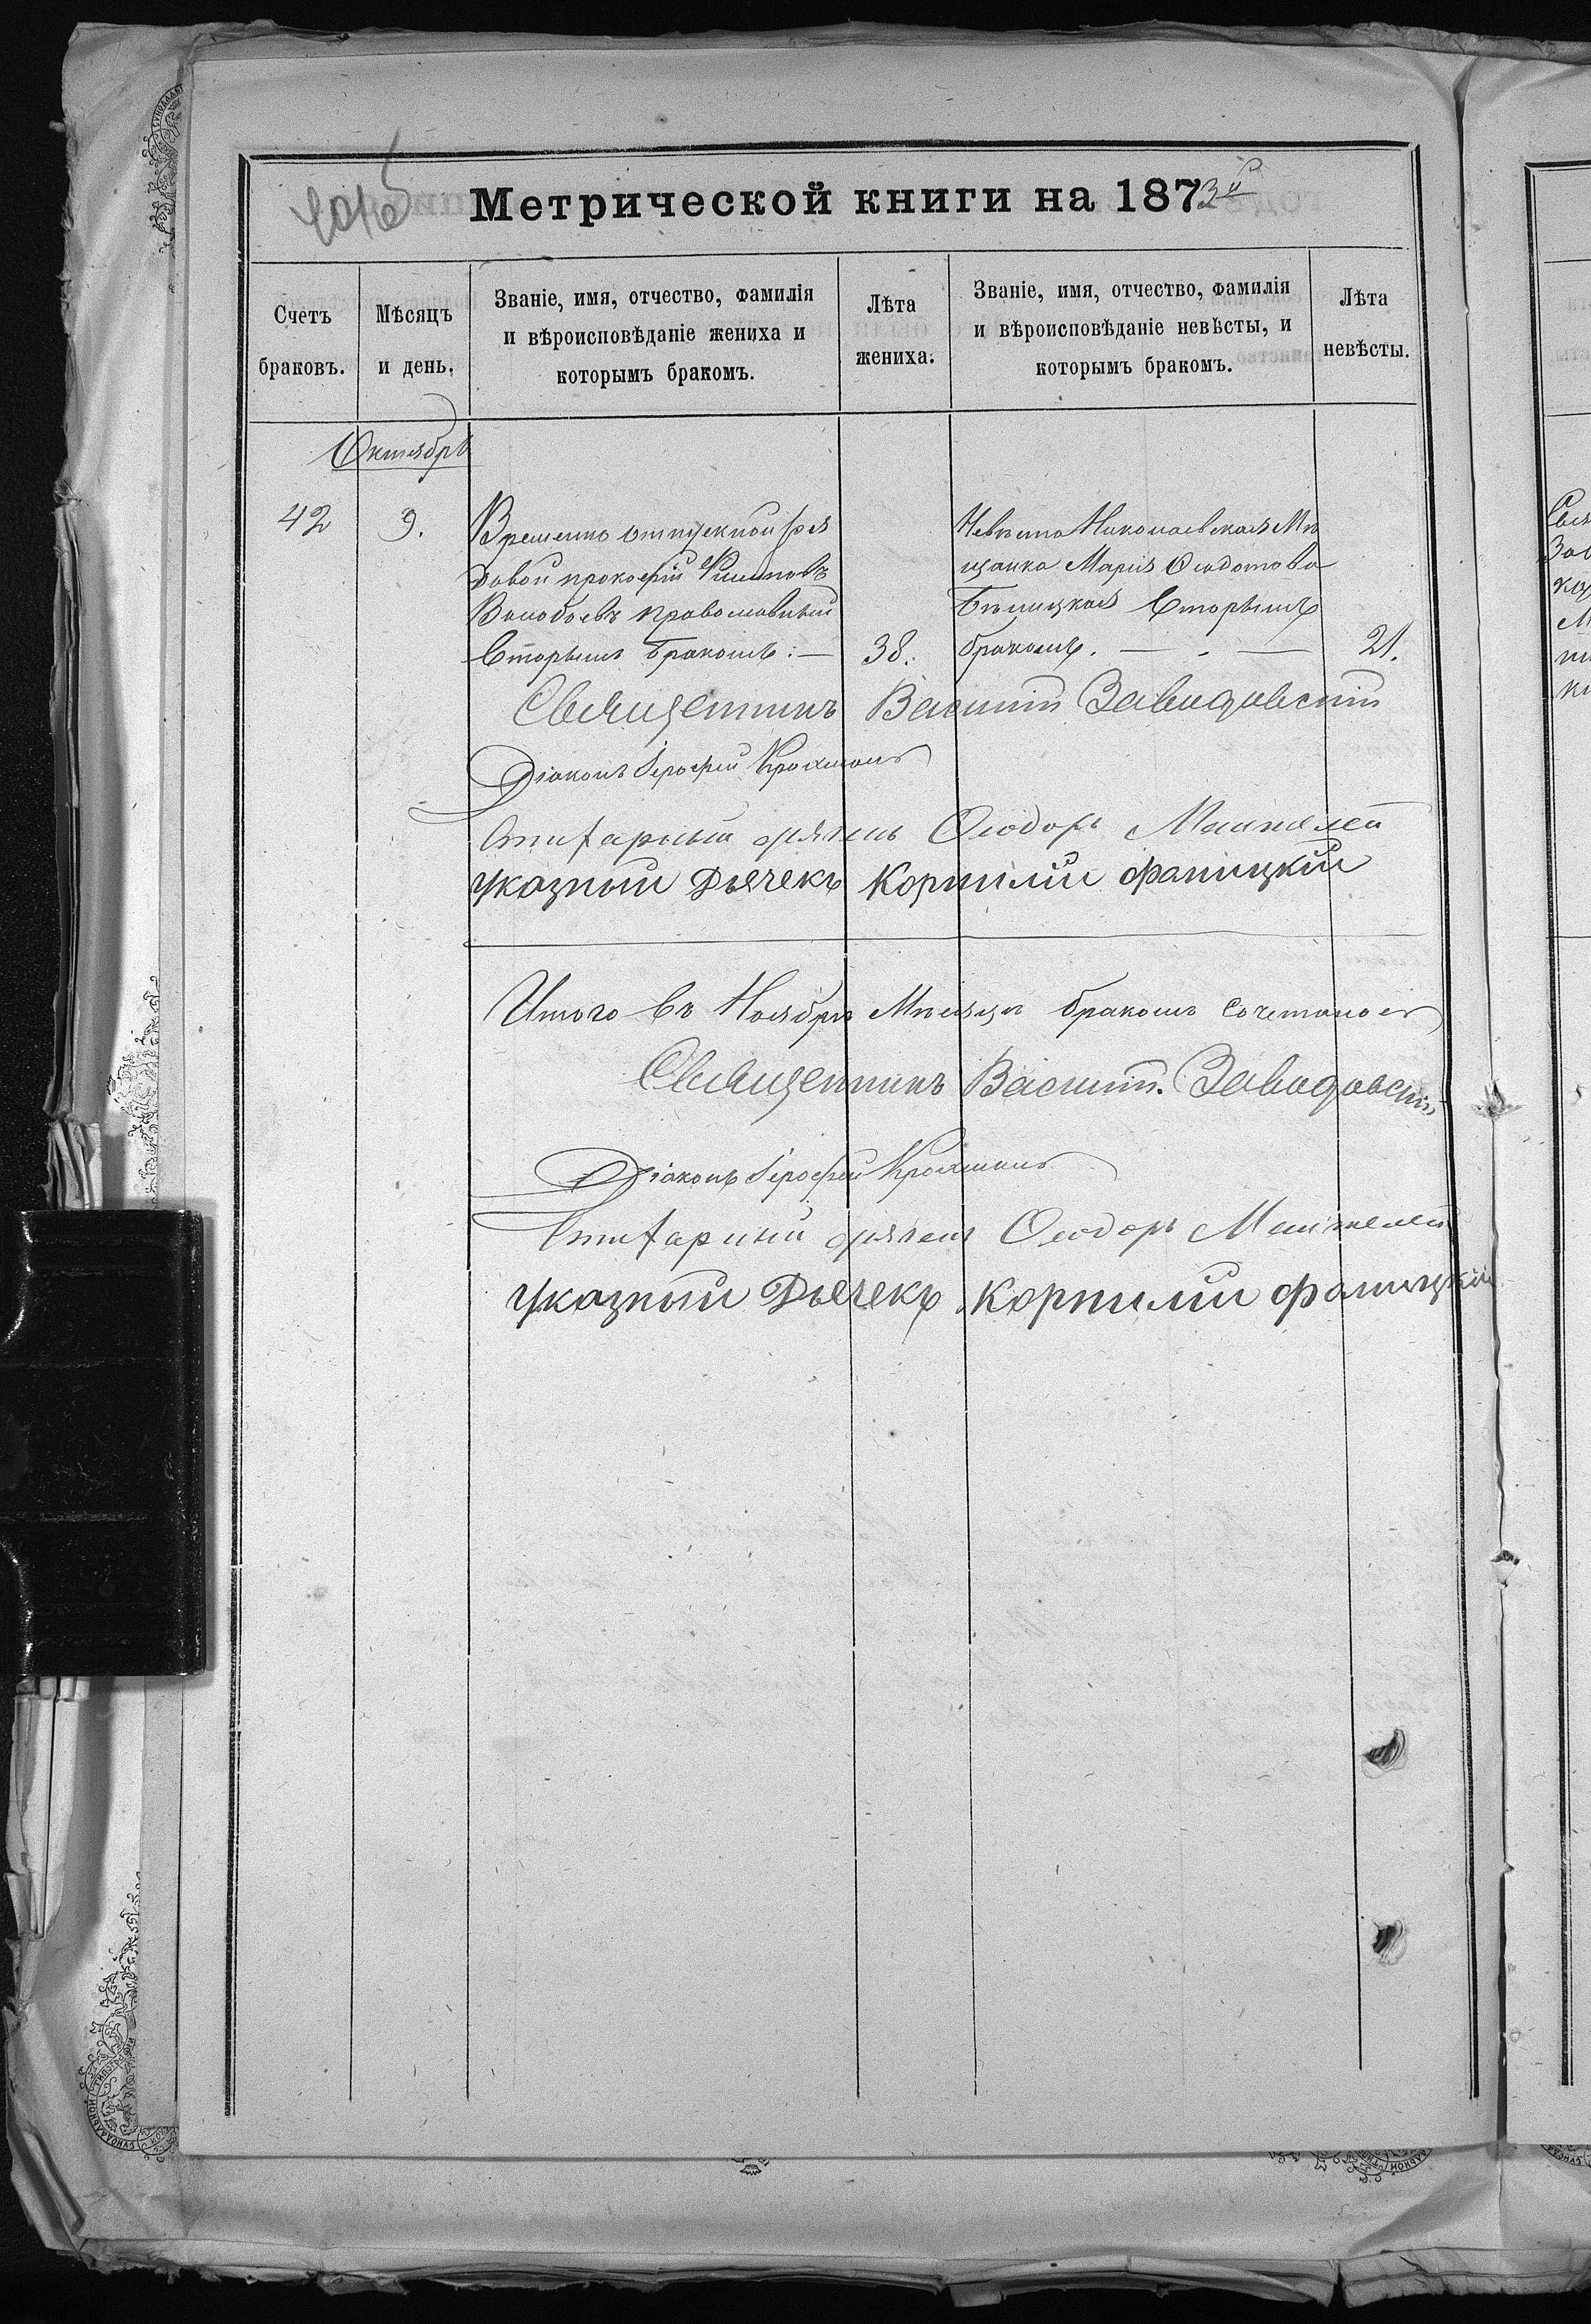 Метрической книги на 1873й
Счетъ браковъ.
Мѣсяцъ и день.
Званіе, имя, отчество, фамилія и вѣроисповѣданіе жениха и которымъ бракомъ.
Лѣта жениха.
Званіе, имя, отчество, фамилія и вѣроисповѣданіе невѣсты, и которымъ бракомъ.
Лѣта невѣсты.
Октябрь
42
9.
Временно отпускной ря
довой прокофій Филиповъ
православный
Вторымъ бракомъ: —
38.
Невѣста Николаевская Мѣ
щанка Марія Ѳеодотова
Бѣлицкая Вторымъ
бракомъ. —
21.
Священникъ Василій Завадовскій
Діаконъ Іерофей
Ѳеодоръ
указный Дьячекъ Корнилій
Итого въ Ноябрѣ Мѣсяцѣ бракомъ сочеталось
Священникъ Василій Завадовскій
Діаконъ Іерофей
Ѳеодоръ
указный Дьячекъ Корнилій